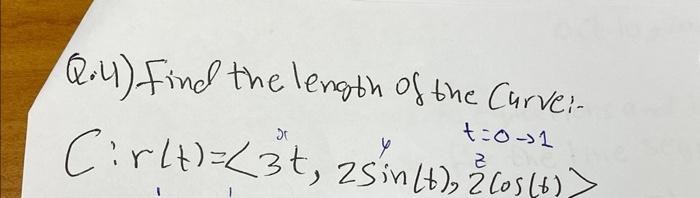 Q.4) Find the length of the Curve:-
t=0→1
x y z
C: r(t)=<3t, 2sin(t), 2cos(t)>